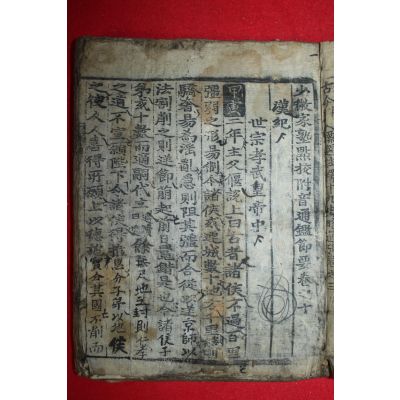 少微家塾點校附音通鑑節要卷之十
漢紀
世宗孝武皇帝中
甲寅二年主父偃說上曰古者諸侯不過百里
彊弱之形易制今諸侯或連城數十地方千里緩則
驕奢易為淫亂急則阻其彊而合從以逆京師以
法割削之則逆節萌起前日鼂錯是也今諸侯子
弟或十數而適嗣代立餘無尺地之封則仁孝
之道不宣願陛下令諸侯得推恩分子弟以地侯
之彼人人喜得所願上以德施實分其國不削而